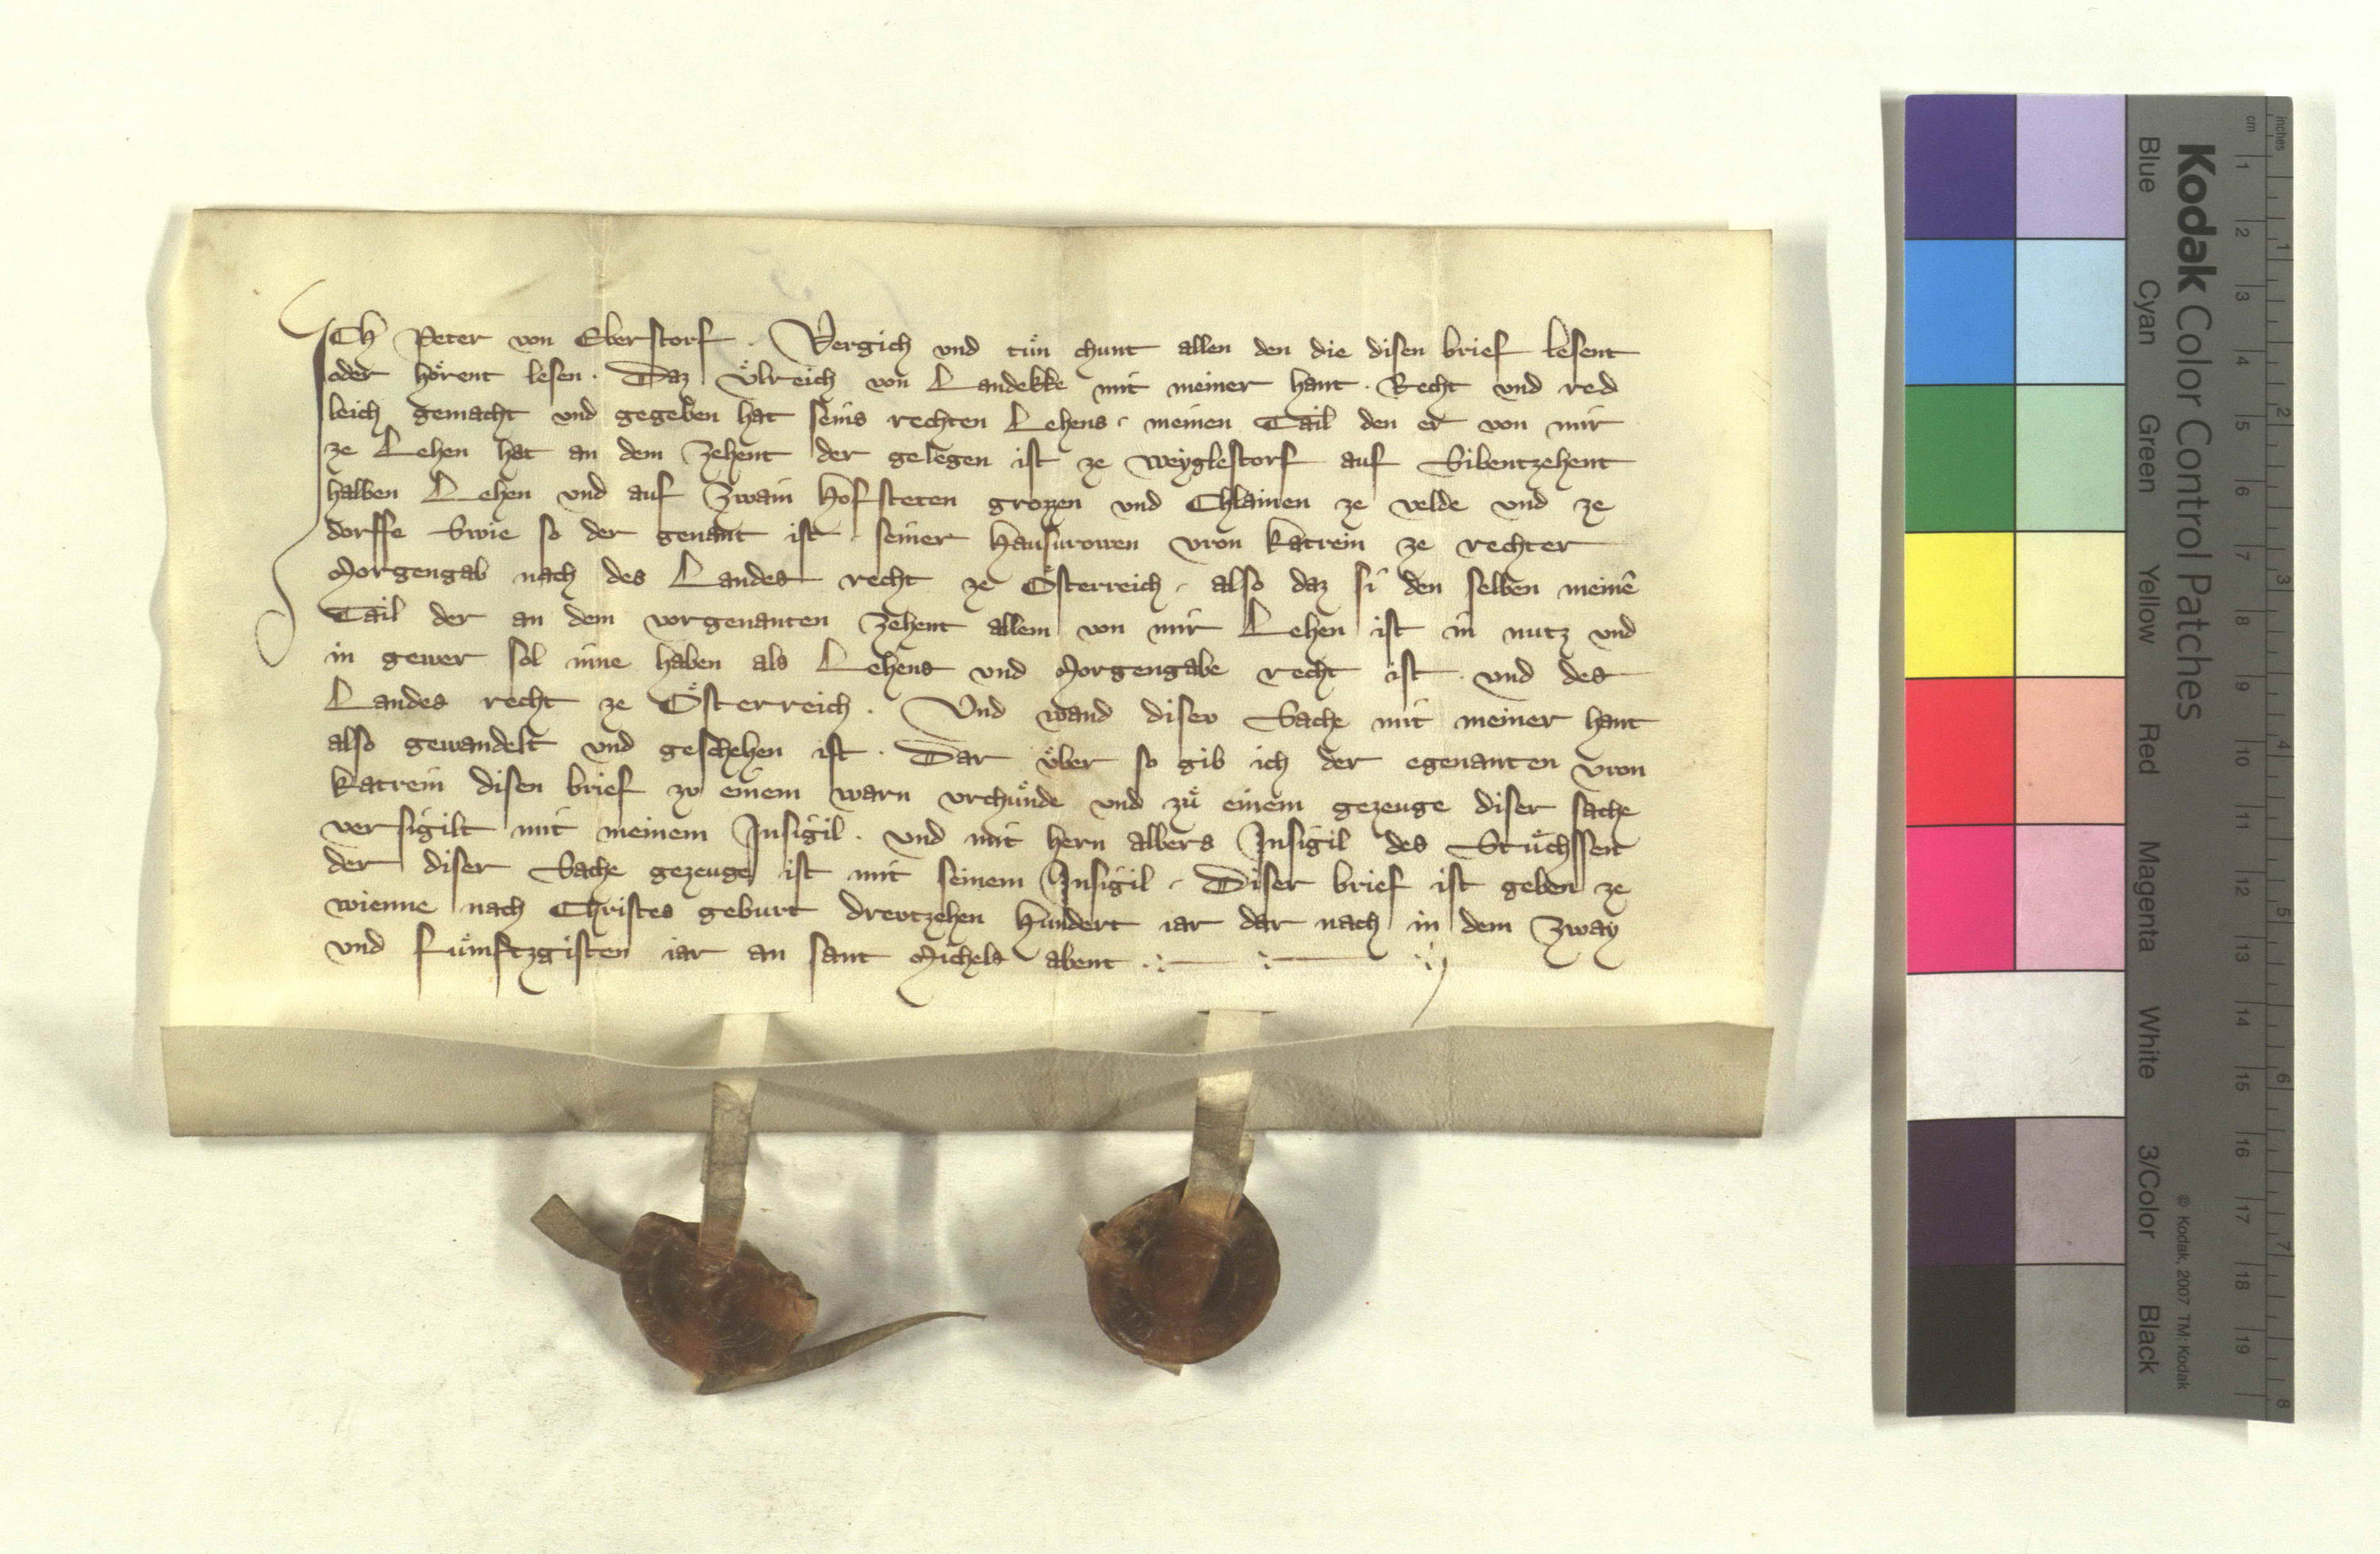 ICh Peter von Eberstorf . Vergich vnd tuͤn chunt allen den die disen brief lesent
oder hoͤrent lesen . Daz Vͤlreich von Landekke mit meiner hant . Recht vnd red
leich gemacht vnd gegeben hat seins rechten Lehens . meinen Tail den er von mir
ze Lehen hat an dem zehent der gelegen ist ze weyglestorf auf Sibentzehent
halben Lehen vnd auf zwain hofsteten grozzen vnd Chlainen ze velde vnd ze
dorffe Swie so der genant ist seiner hausvrowen vron katrein ze rechter
Morgengab nach des Landes recht ze Oͤsterreich . also daz si den selben meinē
Tail der an dem vorgenanten zehent allem von mir Lehen ist in nutz vnd
in gewer sol inne haben als Lehens vnd Morgengabe recht ist . vnd des
Landes recht ze Oͤsterreich . Vnd wand diser Sache mit meiner hant
also gewandelt vnd geschehen ist . Dar vͤber so gib ich der egenanten vron
katrein disen brief zv einem warn vrchuͤnde vnd zuͤ einem gezeuge diser sache
versigilt mit meinem Insigil . vnd mit hern albers Insigil des Stuͤchssen
der diser Sache gezeuge ist mit seinem Insigil . Diser brief ist geben ze
wienne nach Christes geburt drevtzehen hundert iar dar nach in dem zway
vnd fuͤmftzgisten iar an sant Michels abent
Kodak Color Control Patches
© Kodak, 2007 TM: Kodak
Blue Cyan Green Yellow Red Magenta White 3/Color Black
cm 1 2 3 4 5 6 7 8 9 10 11 12 13 14 15 16 17 18 19
inches 1 2 3 4 5 6 7 8